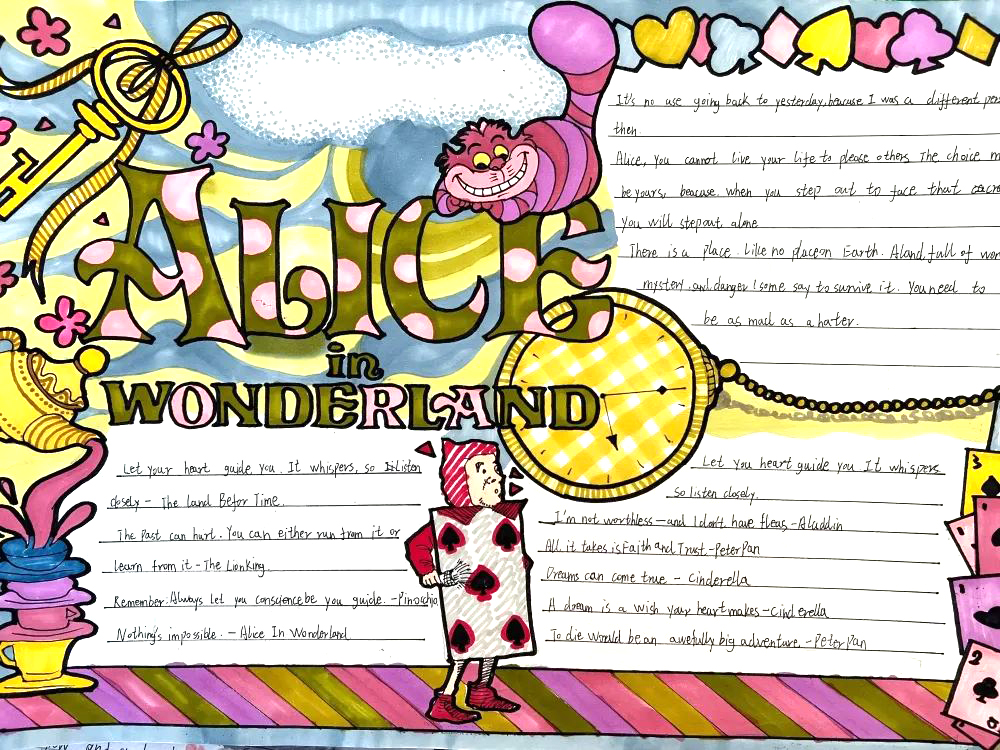 ALICE
in
WONDERLAND
It's no use going back to yesterday, beacuse I was a different
then.
Alice, you cannot live your life to please others. The choice m
be yours, beacuse when you step out to face that
you will step out alone
There is a place. Like no place on Earth. A land full of won
mystery, and danger! some say to survive it. You need to
be as mad as a hater.
Let your heart guide you. It whispers, so listen
closely - The Land Befor Time.
The Past can hurt. You can either run from it or
learn from it - The Lionking.
Remember. Always let you conscience be you guide. - Pinocchio
Nothing's impossible. - Alice In Wonderland
Let you heart guide you It whispers
so listen closely.
I'm not worthless - and I don't have fleas - Aladdin
All it takes is Faith and Trust - Peter Pan
Dreams can come true - Cinderella
A dream is a wish your heart makes - Cinderella
To die would be an awefully big adventure. - Peter Pan
3
2